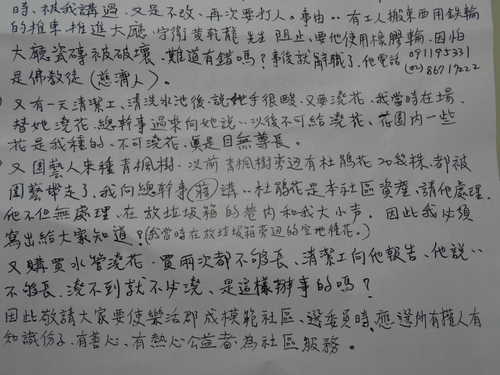 時、被我講過，又是不改、再次要打人。事由．．有工人搬東西用鉄輪
的推車推進大廳，守衛黃乾龍先生阻止，要他使用橡膠輪、因怕
大廳瓷磚被破壞，難道有錯嗎？事後就辭職了、他電話
是佛教徒(慈濟人)。
又有一天清潔工、清洗水池後，說她手很酸，又要澆花、我當時在場，
替她澆花、總幹事過來向她說．．以後不可給澆花、花園內一些
花是我種的、不可澆花、真是目無尊長。
又園藝人來種青楓樹、以前青楓樹旁边有杜鵑花20幾株、都被
園藝帶走了、我向總幹事講．．杜鵑花是本社區資產、請他處理、
他不但無處理、在放垃圾箱的巷內和我大小声。因此我必須
寫出給大家知道？(我當時在放垃圾箱旁边的空地種花。)
又購買水管澆花，買兩次都不夠長、清潔工向他報告、他說．．
不夠長，澆不到就不必澆、是這樣辦事的嗎？
因此敬請大家要使樂活郡成模範社區、選委員時，應選所有權人有
知識份子、有善心、有熱心公益者為社區服務。